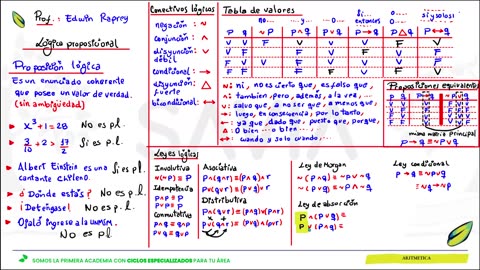 Prof.: Edwin Raprey
Lógica proposicional
Proposición lógica
Es un enunciado coherente
que posee un valor de verdad.
(sin ambigüedad)
x³+1=28 No es p.l.
3/10 + 2 > 17/2 Si es p.l.
Albert Einstein es una Si es p.l.
cantante chileno.
¿Dónde estás? No es p.l.
¡Deténgase! No es p.l.
Ojalá ingrese a la UNMSM.
No es p.l.
Conectivos lógicos
negación : ~
conjunción : ∧
disyunción : ∨
débil
condicional : →
disyunción : △
fuerte
bicondicional: ↔
Tabla de valores
no... ...y... ...o... Si... entonces... o... o... ...si y solo si...
p q ~p p∧q p∨q p→q p△q p↔q
~: ni, no es cierto que, es falso que
∧: también, pero, además, a la vez, ...
∨: salvo que, a no ser que, a menos que,
→: luego, en consecuencia, por lo tanto,
←: ya que, dado que, puesto que, porque,
△: O bien ... o bien ...
↔: cuando y solo cuando
Proposiciones equivalentes
misma matriz principal
p→q ≡ ~p∨q
Leyes lógicas
Involutiva
~(~p) ≡ p
Idempotencia
p∧p ≡ p
p∨p ≡ p
Conmutativa
p∨q ≡ q∨p
Asociativa
p∧(q∧r) ≡ (p∧q)∧r
p∨(q∨r) ≡ (p∨q)∨r
Distributiva
p∧(q∨r) ≡ (p∧q)∨(p∧r)
p∨(q∧r) ≡ (p∨q)∧(p∨r)
Ley de Morgan
~(p∧q) ≡ ~p∨~q
~(p∨q) ≡ ~p∧~q
Ley de absorción
p∧(p∨q) ≡
p∨(p∧q) ≡
Ley condicional
p→q ≡ ~p∨q
≡ ~q→~p
SOMOS LA PRIMERA ACADEMIA CON CICLOS ESPECIALIZADOS PARA TU ÁREA
ARITMETICA